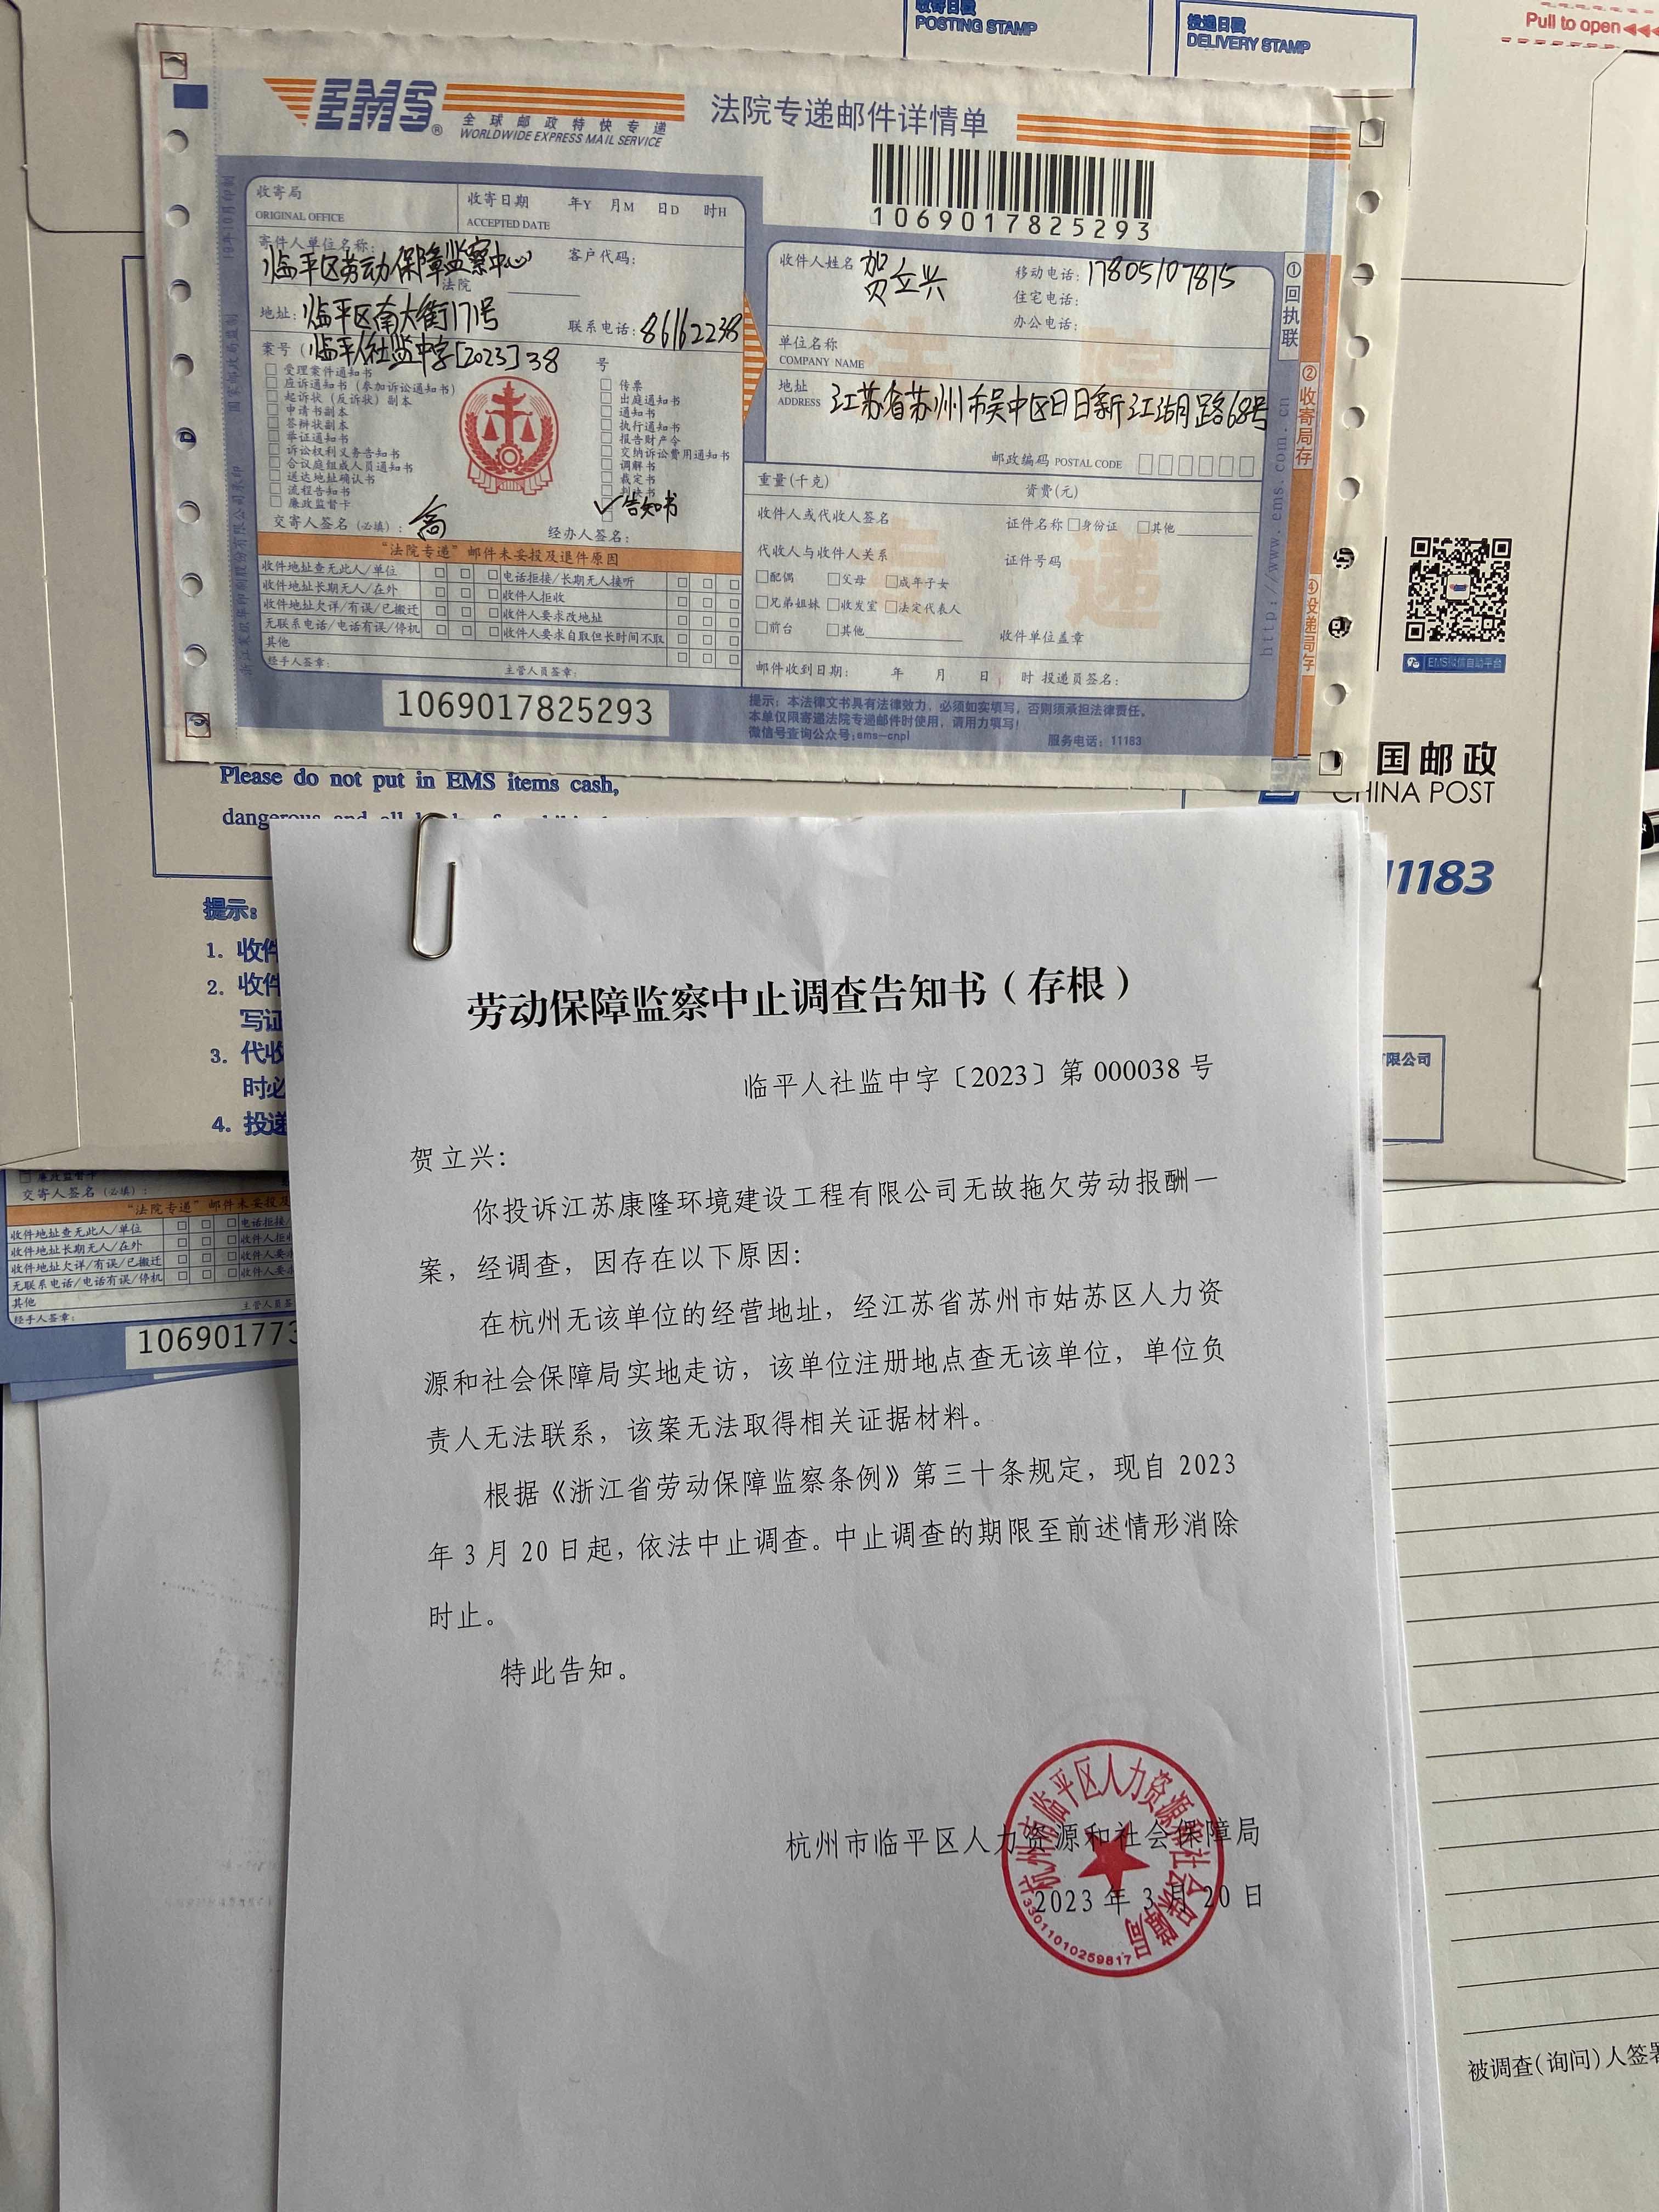 收寄日戳
POSTING STAMP
投递日戳
DELIVERY STAMP
Pull to open
EMS
全球邮政特快专递
WORLDWIDE EXPRESS MAIL SERVICE
法院专递邮件详情单
1069017825293
收寄局
ORIGINAL OFFICE
收寄日期 年Y 月M 日D 时H
ACCEPTED DATE
寄件人单位名称:
临平区劳动保障监察中心
法院
客户代码:
地址: 临平区南大街171号
联系电话: 86162238
案号( 临平人社监中字[2023]38 号
受理案件通知书
应诉通知书(参加诉讼通知书)
起诉状(反诉状)副本
申请书副本
答辩状副本
举证通知书
诉讼权利义务告知书
合议庭组成人员通知书
送达地址确认书
流程告知书
廉政监督卡
传票
出庭通知书
通知书
执行通知书
报告财产令
交纳诉讼费用通知书
调解书
裁定书
判决书
✓告知书
交寄人签名(必填):
经办人签名:
“法院专递”邮件未妥投及退件原因
收件地址查无此人/单位
收件地址长期无人/在外
收件地址欠详/有误/已搬迁
无联系电话/电话有误/停机
其他
电话拒接/长期无人接听
收件人拒收
收件人要求改地址
收件人要求自取但长时间不取
经手人签章:
主管人员签章:
1069017825293
收件人姓名 贺立兴
移动电话: 17805107815
住宅电话:
办公电话:
单位名称
COMPANY NAME
地址
ADDRESS
江苏省苏州市吴中区日日新江湖月路68号
邮政编码 POSTAL CODE
重量(千克)
资费(元)
收件人或代收人签名
证件名称 身份证 其他
代收人与收件人关系
证件号码
配偶 父母 成年子女
兄弟姐妹 收发室 法定代表人
前台 其他
收件单位盖章
邮件收到日期: 年 月 日 时 投递员签名:
提示: 本法律文书具有法律效力,必须如实填写,否则须承担法律责任。
本单仅限寄递法院专递邮件时使用,请用力填写!
微信号查询公众号:ems-cnpl
服务电话: 11183
http://www.ems.com.cn
①回执联
②收寄局存
④投递局存
EMS微信自助平台
国邮政
CHINA POST
11183
限公司
Please do not put in EMS items cash,
提示:
1. 收件
2. 收件
写证
3. 代收
时必
4. 投递
廉政监督卡
交寄人签名(必填):
“法院专递”邮件未妥投及
收件地址查无此人/单位
收件地址长期无人/在外
收件地址欠详/有误/已搬迁
无联系电话/电话有误/停机
其他
经手人签章:
主管人员签
106901773
劳动保障监察中止调查告知书(存根)
临平人社监中字〔2023〕第 000038 号
贺立兴:
你投诉江苏康隆环境建设工程有限公司无故拖欠劳动报酬一
案,经调查,因存在以下原因:
在杭州无该单位的经营地址,经江苏省苏州市姑苏区人力资
源和社会保障局实地走访,该单位注册地点查无该单位,单位负
责人无法联系,该案无法取得相关证据材料。
根据《浙江省劳动保障监察条例》第三十条规定,现自 2023
年 3 月 20 日起,依法中止调查。中止调查的期限至前述情形消除
时止。
特此告知。
杭州市临平区人力资源和社会保障局
2023 年 3 月 20 日
杭州市临平区人力资源和社会保障局
33011010259817
被调查(询问)人签署